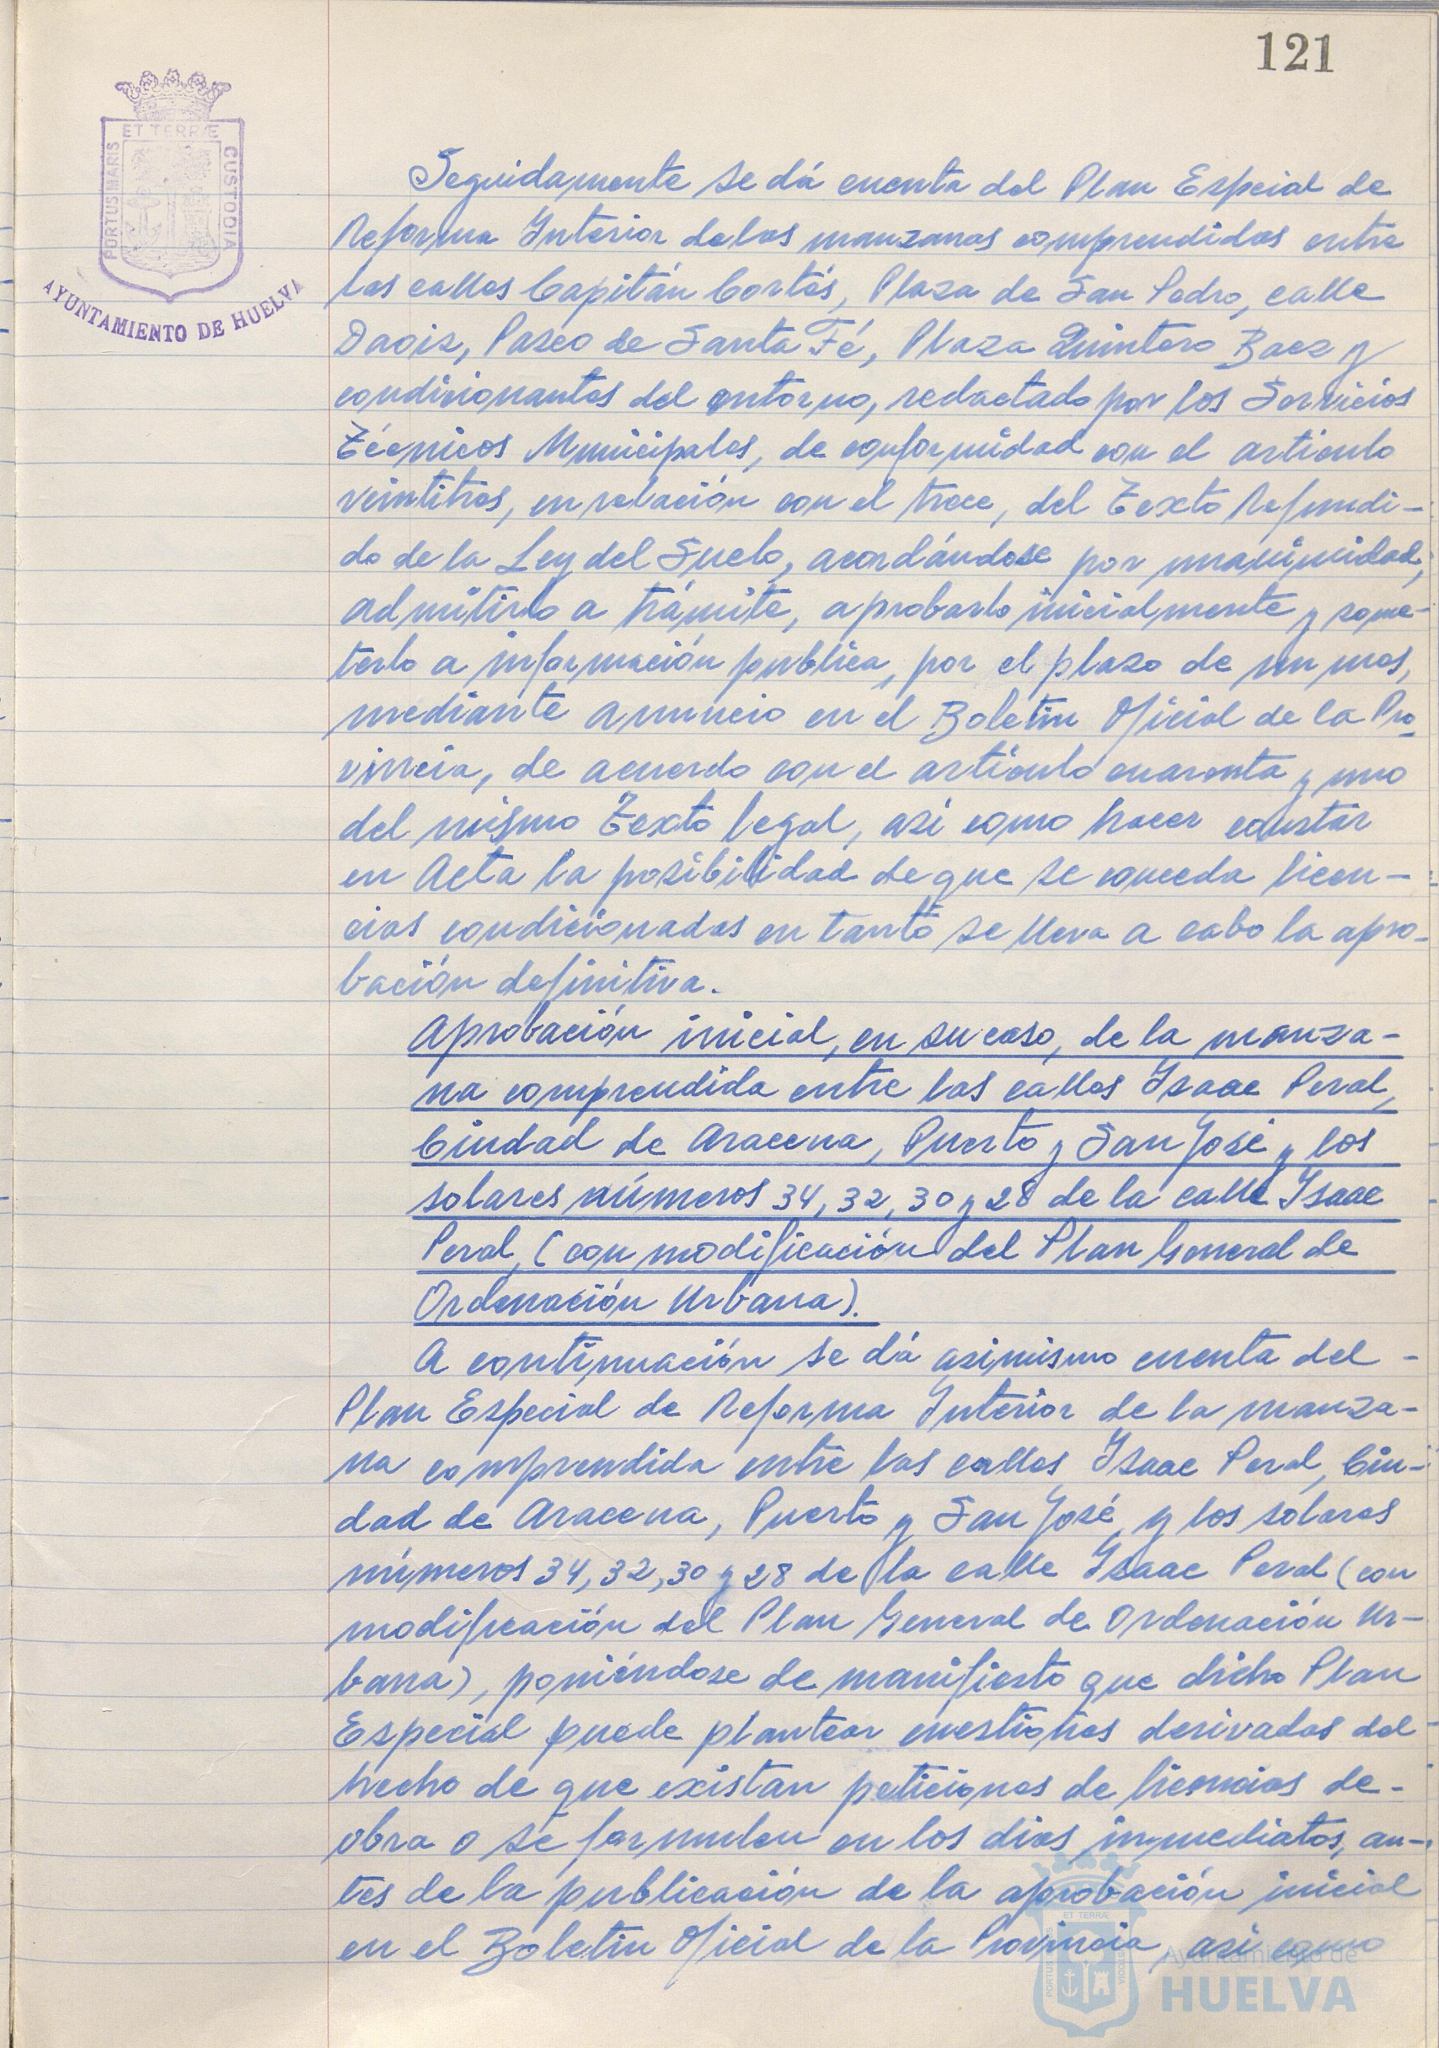 121
ET TERRÆ
PORTUS MARIS
CUSTODIA
AYUNTAMIENTO DE HUELVA
Seguidamente se dá cuenta del Plan Especial de
Reforma Interior de las manzanas comprendidas entre
las calles Capitán Cortés, Plaza de San Pedro, calle
Daoiz, Paseo de Santa Fé, Plaza Quintero Baez y
condicionantes del entorno, redactado por los Servicios
Técnicos Municipales, de conformidad con el articulo
veintitres, en relación con el trece, del Texto Refundi-
do de la Ley del Suelo, acordándose por unanimidad,
admitirlo a trámite, aprobarlo inicialmente y some-
terlo a información publica, por el plazo de un mes,
mediante anuncio en el Boletin Oficial de la Pro
vincia, de acuerdo con el artículo cuarenta y uno
del mismo Texto legal, asi como hacer constar
en Acta la posibilidad de que se conceda licen-
cias condicionadas en tanto se lleva a cabo la apro-
bación definitiva.
Aprobación inicial, en su caso, de la manza-
na comprendida entre las calles Isaac Peral,
Ciudad de Aracena, Puerto y San José y los
solares números 34, 32, 30 y 28 de la calle Isaac
Peral, (con modificación del Plan General de
Ordenación Urbana).
A continuación se dá asimismo cuenta del -
Plan Especial de Reforma Interior de la manza-
na comprendida entre las calles Isaac Peral, Ciu-
dad de Aracena, Puerto y San José, y los solares
números 34, 32, 30 y 28 de la calle Isaac Peral (con
modificación del Plan General de Ordenación Ur-
bana), poniéndose de manifiesto que dicho Plan
Especial puede plantear cuestiones derivadas del
hecho de que existan peticiones de licencias de-
obra o se formulen en los dias inmediatos, an-
tes de la publicación de la aprobación inicial
en el Boletin Oficial de la Provincia, asi como
ET TERRÆ
PORTUS MARIS
CUSTODIA
Ayuntamiento de
HUELVA